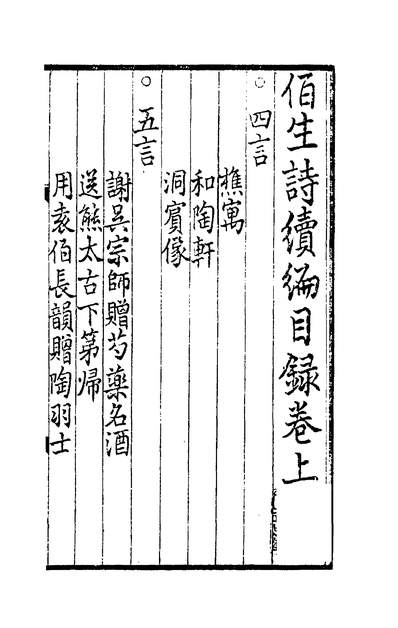 伯生詩續編目録卷上
○四言
樵寓
和陶軒
洞賔像
○五言
謝吳宗師贈芍藥名酒
送熊太古下第帰
用袁伯長韻贈陶羽士